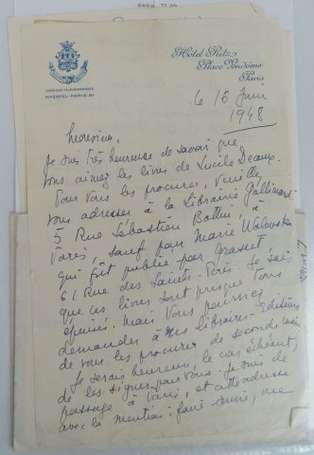 Hôtel Ritz
Place Vendôme
Paris
le 16 Juin
1948
Monsieur,
Je suis très heureuse de savoir que
vous aimez les livres de Lucile Decaux.
Pour vous les procurer, veuillez
vous adresser à la Librairie Gallimard
5 Rue Sébastien Bottin, à
Paris, sauf pour Marie Walewska
qui fût publié par Grasset
61 Rue des Saints-Pères. Je sais
que ces livres sont presque tous
épuisés, mais vous pourriez
demander à mes Libraires-Editeurs
de vous les procurer de seconde main
Je serais heureuse, le cas échéant,
de les signer pour vous. Je suis de
passage à Paris, et cette adresse
avec la mention: faire suivre, me